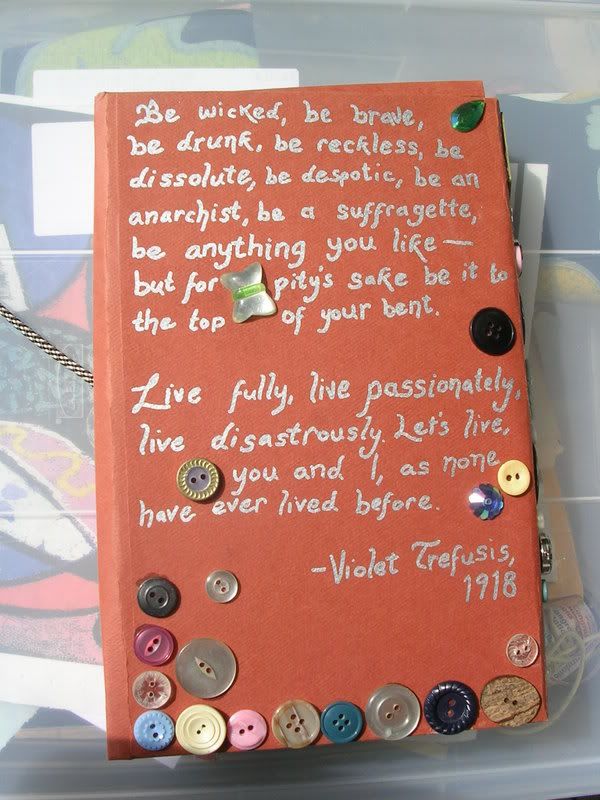 Be wicked, be brave,
be drunk, be reckless, be
dissolute, be despotic, be an
anarchist, be a suffragette,
be anything you like—
but for pity's sake be it to
the top of your bent.
Live fully, live passionately,
live disastrously. Let's live,
you and I, as none
have ever lived before.
-Violet Trefusis,
1918